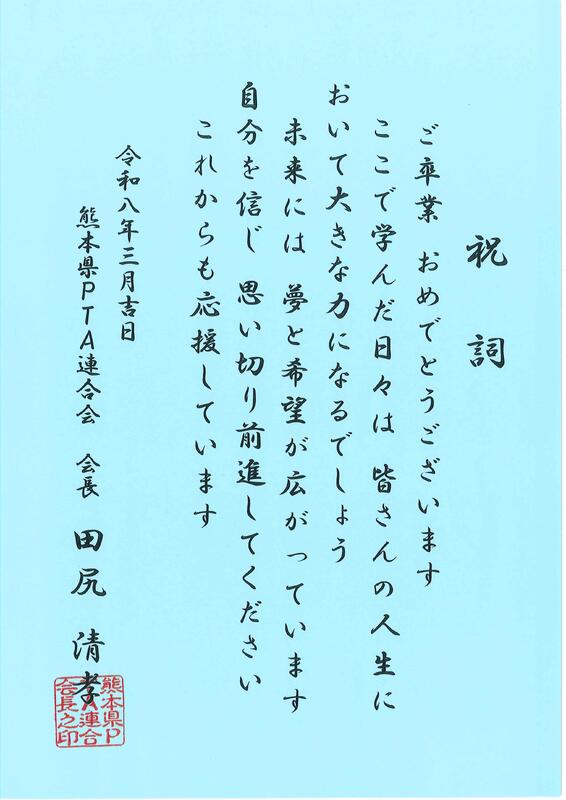 祝詞
ご卒業　おめでとうございます
ここで学んだ日々は　皆さんの人生に
おいて大きな力になるでしょう
未来には　夢と希望が広がっています
自分を信じ　思い切り前進してください
これからも応援しています
令和八年三月吉日
熊本県PTA連合会　会長　田尻　清孝
熊本県P
TA連合
会長之印